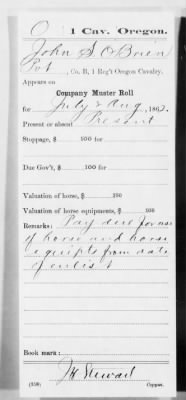 O 1 Cav. Oregon.
John S. O'Brien
Pvt, Co. B, 1 Reg't Oregon Cavalry.
Appears on
Company Muster Roll
for July & Aug, 1862.
Present or absent Present
Stoppage, $ 100 for
Due Gov't, $ 100 for
Valuation of horse, $ 100
Valuation of horse equipments, $ 100
Remarks: Pay due for use
of horse and horse
equipts from date
of enlist
Book mark:
Stewart
(358) Copyist.